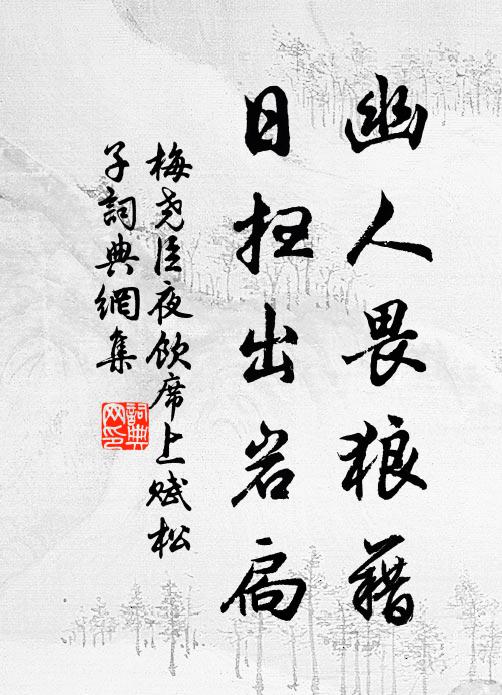 幽人畏狼藉
日扫出岩扃
梅尧臣夜饮席上赋松
子詞典網集
詞典
网印